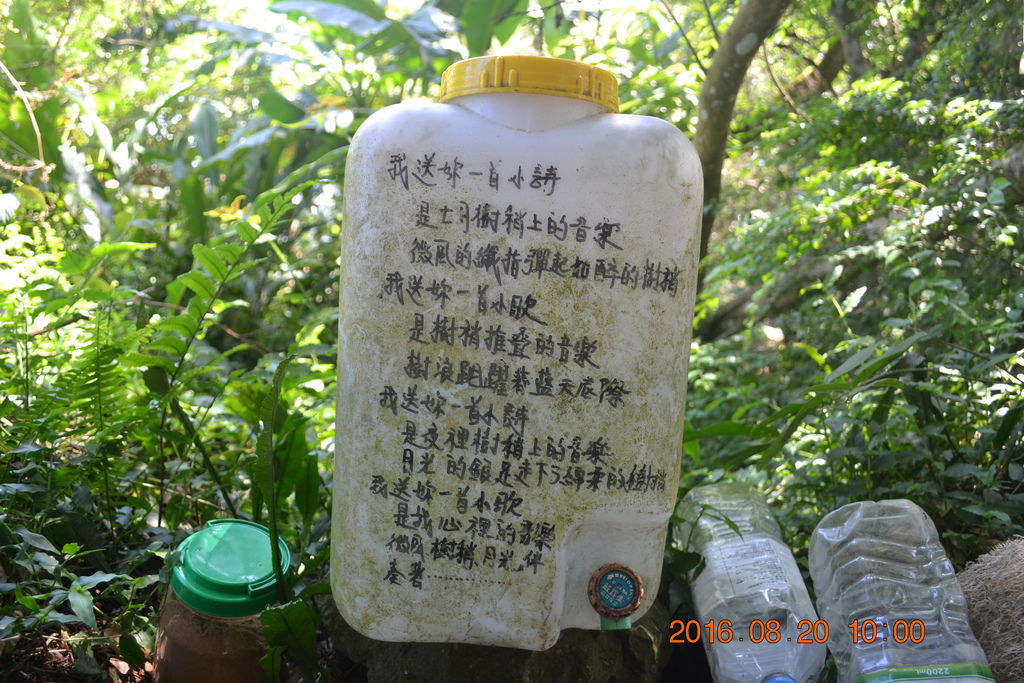 我送妳一首小詩
是 樹稍上的音樂
微風的纖指彈起 醉的樹稍
我送妳一首小歌
是樹梢推疊的音樂
樹浪 躍著藍天底際
我送妳一首小詩
是夜裡樹稍上的音樂
月光的銀 走下 的樹梢
我送妳一首小歌
是我心裡的音樂
微風樹稍月光伴
奏著............
2200ml
2016.08.20 10:00